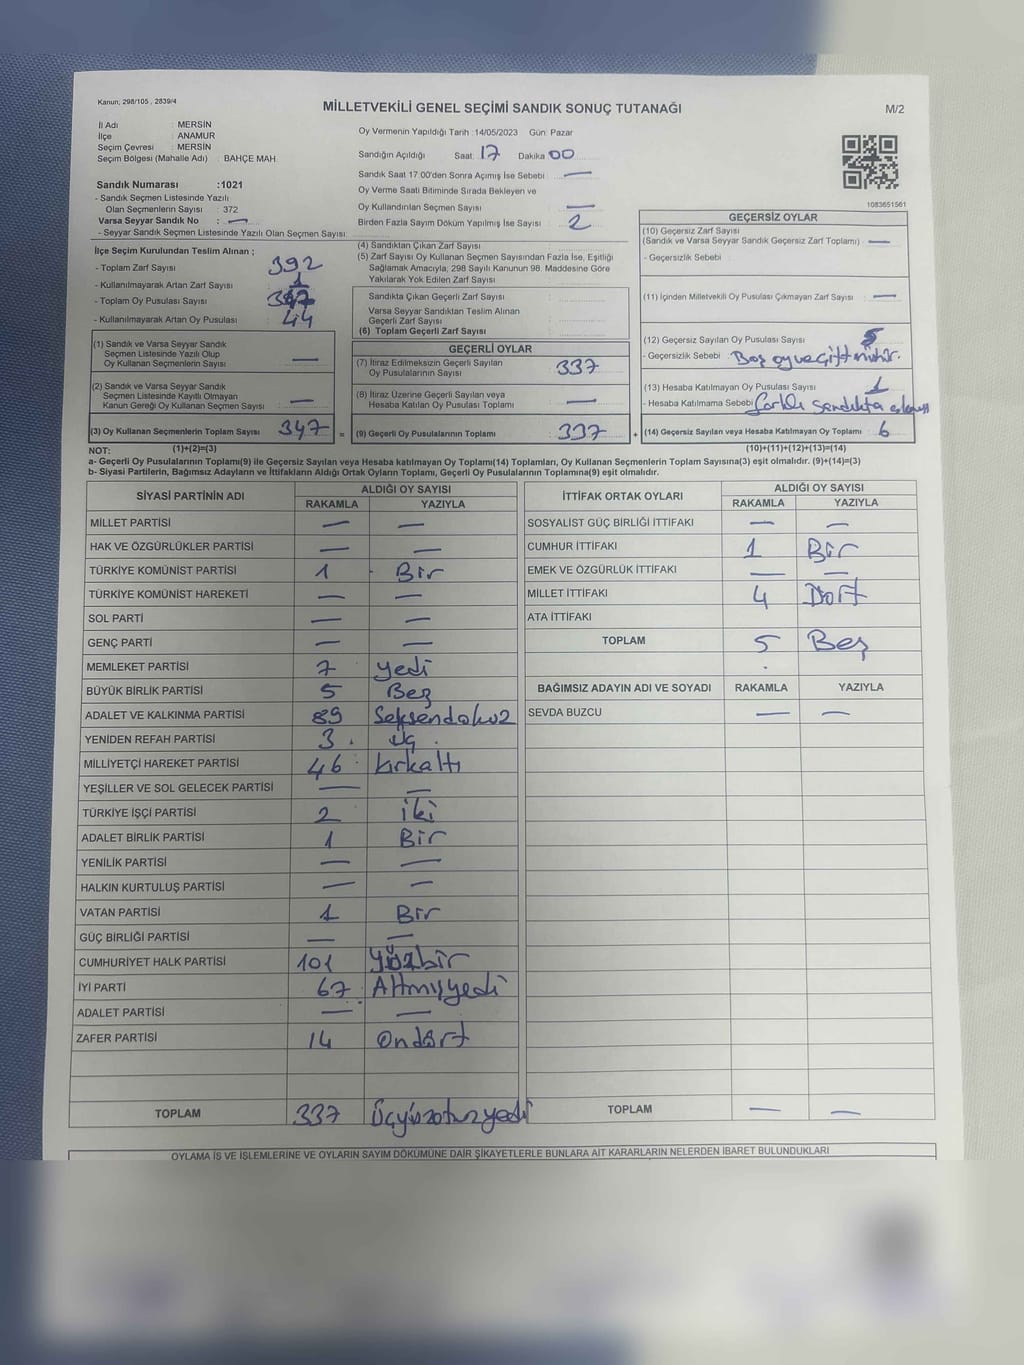 Kanun; 298/105 , 2839/4
MİLLETVEKİLİ GENEL SEÇİMİ SANDIK SONUÇ TUTANAĞI
M/2
İl Adı : MERSİN
İlçe : ANAMUR
Seçim Çevresi : MERSİN
Seçim Bölgesi (Mahalle Adı) : BAHÇE MAH.
Oy Vermenin Yapıldığı Tarih :14/05/2023 Gün: Pazar
Sandığın Açıldığı Saat: 17 Dakika 00
Sandık Saat 17:00'den Sonra Açımış İse Sebebi : —
Oy Verme Saati Bitiminde Sırada Bekleyen ve
Oy Kullandırılan Seçmen Sayısı : —
Birden Fazla Sayım Döküm Yapılmış İse Sayısı : 2
1083651561
Sandık Numarası :1021
- Sandık Seçmen Listesinde Yazılı
Olan Seçmenlerin Sayısı : 372
Varsa Seyyar Sandık No : —
- Seyyar Sandık Seçmen Listesinde Yazılı Olan Seçmen Sayısı:
İlçe Seçim Kurulundan Teslim Alınan ;
- Toplam Zarf Sayısı 392
- Kullanılmayarak Artan Zarf Sayısı
- Toplam Oy Pusulası Sayısı
- Kullanılmayarak Artan Oy Pusulası : 44
(1) Sandık ve Varsa Seyyar Sandık
Seçmen Listesinde Yazılı Olup
Oy Kullanan Seçmen Sayısı : —
(2) Sandık ve Varsa Seyyar Sandık
Seçmen Listesinde Kayıtlı Olmayan
Kanun Gereği Oy Kullanan Seçmen Sayısı : —
(3) Oy Kullanan Seçmenlerin Toplam Sayısı : 347 =
(1)+(2)=(3)
(4) Sandıktan Çıkan Zarf Sayısı :
(5) Zarf Sayısı Oy Kullanan Seçmen Sayısından Fazla İse, Eşitliği
Sağlamak Amacıyla, 298 Sayılı Kanunun 98. Maddesine Göre
Yakılarak Yok Edilen Zarf Sayısı :
Sandıkta Çıkan Geçerli Zarf Sayısı :
Varsa Seyyar Sandıktan Teslim Alınan
Geçerli Zarf Sayısı :
(6) Toplam Geçerli Zarf Sayısı :
GEÇERLİ OYLAR
(7) İtiraz Edilmeksizin Geçerli Sayılan
Oy Pusulalarının Sayısı : 337
(8) İtiraz Üzerine Geçerli Sayılan veya
Hesaba Katılan Oy Pusulası Toplamı : —
(9) Geçerli Oy Pusulalarının Toplamı : 337 +
GEÇERSİZ OYLAR
(10) Geçersiz Zarf Sayısı
(Sandık ve Varsa Seyyar Sandık Geçersiz Zarf Toplamı) : —
- Geçersizlik Sebebi :
(11) İçinden Milletvekili Oy Pusulası Çıkmayan Zarf Sayısı : —
(12) Geçersiz Sayılan Oy Pusulası Sayısı : 5
- Geçersizlik Sebebi : Boş oy ve
(13) Hesaba Katılmayan Oy Pusulası Sayısı : 1
- Hesaba Katılmama Sebebi : farklı sandıkta
(14) Geçersiz Sayılan veya Hesaba Katılmayan Oy Toplamı : 6
(10)+(11)+(12)+(13)=(14)
NOT:
a- Geçerli Oy Pusulalarının Toplamı(9) ile Geçersiz Sayılan veya Hesaba katılmayan Oy Toplamı(14) Toplamları, Oy Kullanan Seçmenlerin Toplam Sayısına(3) eşit olmalıdır. (9)+(14)=(3)
b- Siyasi Partilerin, Bağımsız Adayların ve İttifakların Aldığı Ortak Oyların Toplamı, Geçerli Oy Pusulalarının Toplamına(9) eşit olmalıdır.
SİYASİ PARTİNİN ADI ALDIĞI OY SAYISI
RAKAMLA YAZIYLA
MİLLET PARTİSİ — —
HAK VE ÖZGÜRLÜKLER PARTİSİ — —
TÜRKİYE KOMÜNİST PARTİSİ 1 Bir
TÜRKİYE KOMÜNİST HAREKETİ — —
SOL PARTİ — —
GENÇ PARTİ — —
MEMLEKET PARTİSİ 7 yedi
BÜYÜK BİRLİK PARTİSİ 5 Beş
ADALET VE KALKINMA PARTİSİ 89 Seksendokuz
YENİDEN REFAH PARTİSİ 3 Üç
MİLLİYETÇİ HAREKET PARTİSİ 46 kırkaltı
YEŞİLLER VE SOL GELECEK PARTİSİ — —
TÜRKİYE İŞÇİ PARTİSİ 2 iki
ADALET BİRLİK PARTİSİ 1 Bir
YENİLİK PARTİSİ — —
HALKIN KURTULUŞ PARTİSİ — —
VATAN PARTİSİ 1 Bir
GÜÇ BİRLİĞİ PARTİSİ — —
CUMHURİYET HALK PARTİSİ 101 Yüzbir
İYİ PARTİ 67 Altmışyedi
ADALET PARTİSİ — —
ZAFER PARTİSİ 14 Ondört
TOPLAM 337 Üçyüzotuzyedi
İTTİFAK ORTAK OYLARI ALDIĞI OY SAYISI
RAKAMLA YAZIYLA
SOSYALİST GÜÇ BİRLİĞİ İTTİFAKI — —
CUMHUR İTTİFAKI 1 Bir
EMEK VE ÖZGÜRLÜK İTTİFAKI — —
MİLLET İTTİFAKI 4 Dört
ATA İTTİFAKI
TOPLAM 5 Beş
BAĞIMSIZ ADAYIN ADI VE SOYADI RAKAMLA YAZIYLA
SEVDA BUZCU — —
TOPLAM — —
OYLAMA İŞ VE İŞLEMLERİNE VE OYLARIN SAYIM DÖKÜMÜNE DAİR ŞİKAYETLERLE BUNLARA AİT KARARLARIN NELERDEN İBARET BULUNDUKLARI